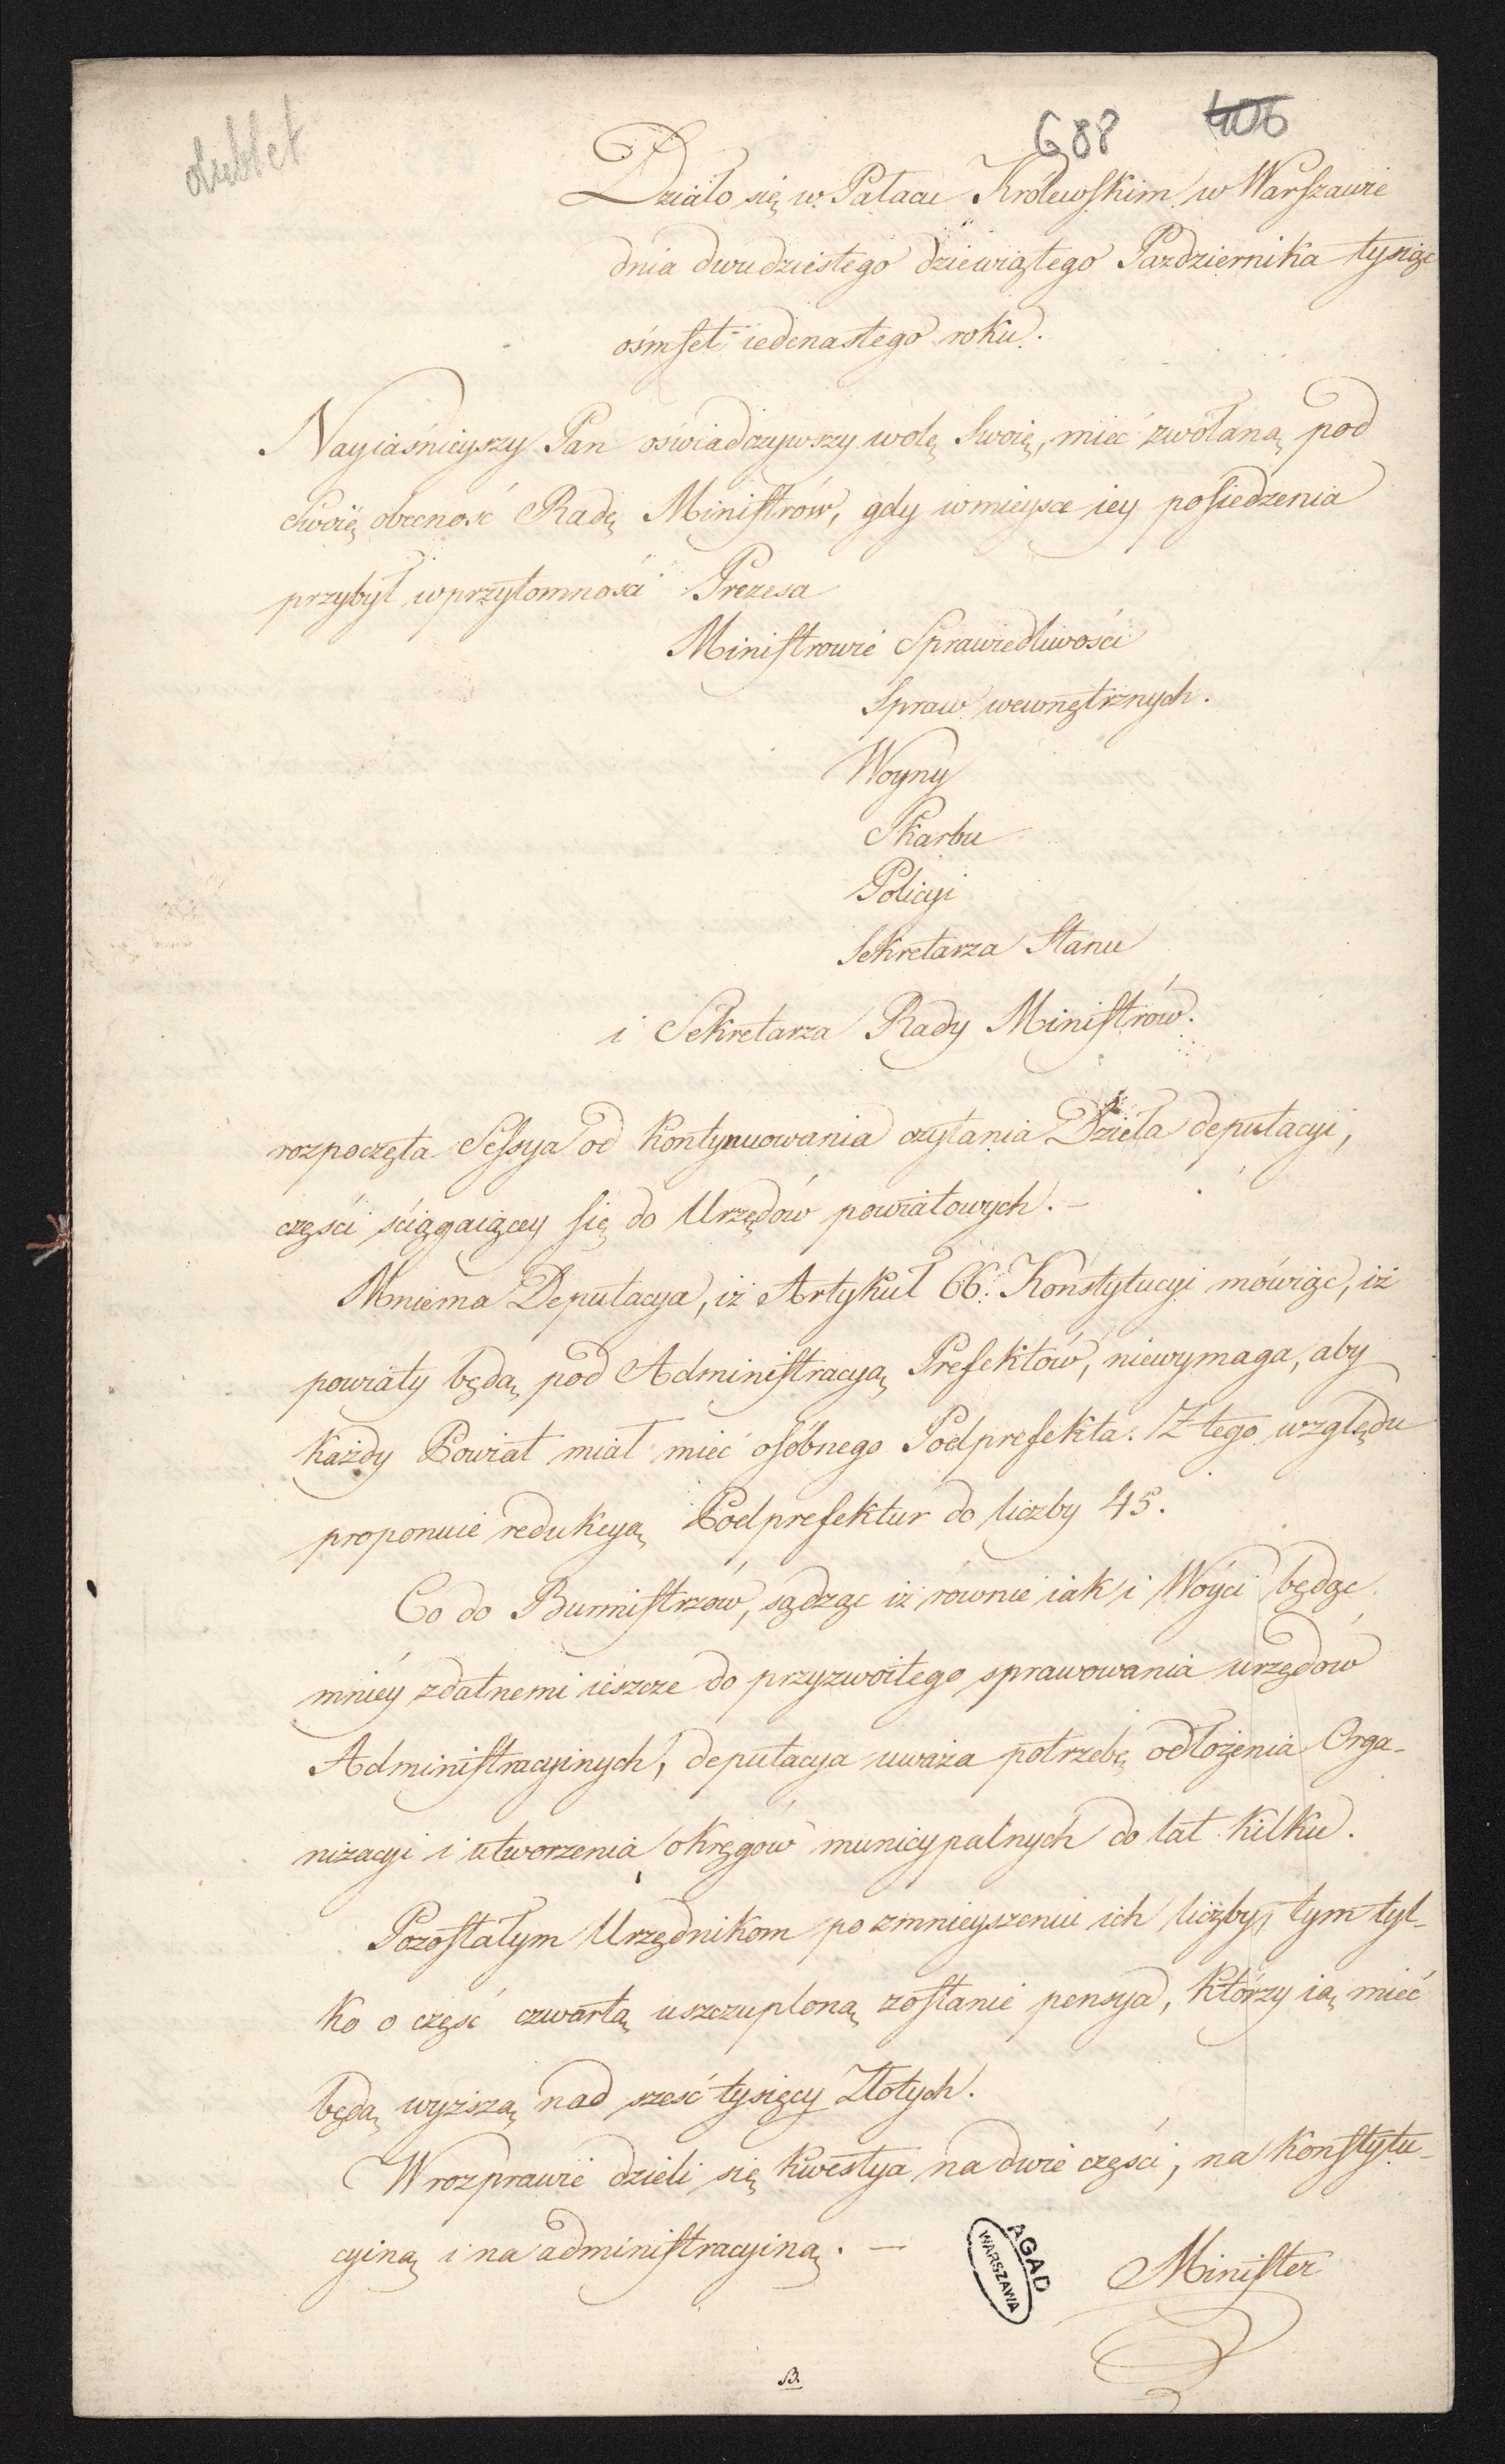 dublet
688 406
Działo się w Pałacu Królewskim w Warszawie
dnia dwudziestego dziewiątego Pazdziernika tysiąc
ośmset iedenastego roku.
Nayiaśnieyszy Pan oświadczywszy wolę Swoię, mieć zwołaną pod
Swoię obecność Radę Ministrów, gdy wmieysce iey posiedzenia
przybył wprzytomności Prezesa
Ministrowie Sprawiedliwości
Spraw wewnętrznych.
Woyny
Skarbu
Policyi
Sekretarza Stanu
i Sekretarza Rady Ministrów.
rozpoczęta Sessya od kontynuowania czytania Dzieła deputacyi,
części ściągaiącey się do Urzędów powiatowych. –
Mniema Deputacya, iż Artykuł 66. Konstytucyi mówiąc, iż
powiaty będą pod Administracyą Prefektów, niewymaga, aby
każdy Powiat miał mieć osóbnego Podprefekta. Z tego względu
proponuie redukcyą Podprefektur do liczby 45.
Co do Burmistrzów, sądząc iż równie iak i Woyci będąc
mniéy zdatnemi ieszcze do przyzwoitego sprawowania urzędów
Administracyinych, deputacya uważa potrzebę odłożenia Orga-
nizacyi i utworzenia okręgów municypalnych do lat kilku.
Pozostałym Urzędnikom po zmnieyszeniu ich liczby, tym tyl-
ko o część czwartą uszczuploną zostanie pensya, którzy ią mieć
będą wyższą nad sześć tysięcy Złotych.
W rozprawie dzieli się kwestya na dwie części, na konstytu-
cyiną i na administracyiną. –
AGAD
WARSZAWA
Minister
B.